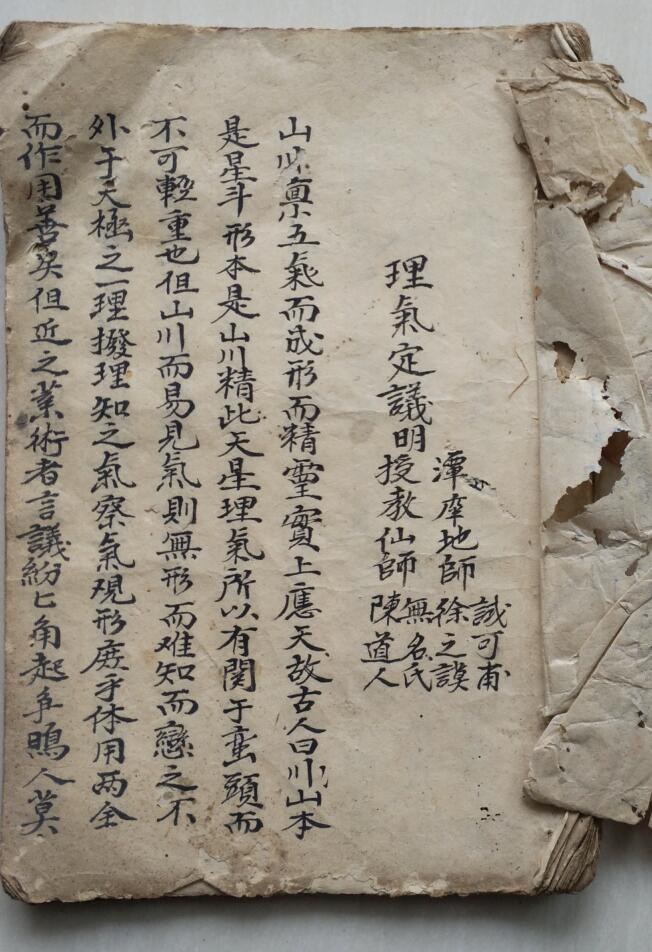 理氣定議明
潭庠地師 徐之謨 誠可甫
授教仙師 無名氏 陳道人
山川禀五氣而成形而精靈實上應天故古人曰川山本
是星斗形本是山川精此天星理氣所以有関于巒頭而
不可輕重也但山川而易見氣則無形而难知而戀之不
外于天極之一理撥理知之氣察氣現形庻乎体用両全
而作用善矣但近之業術者言議紛匕角起争鳴人莫